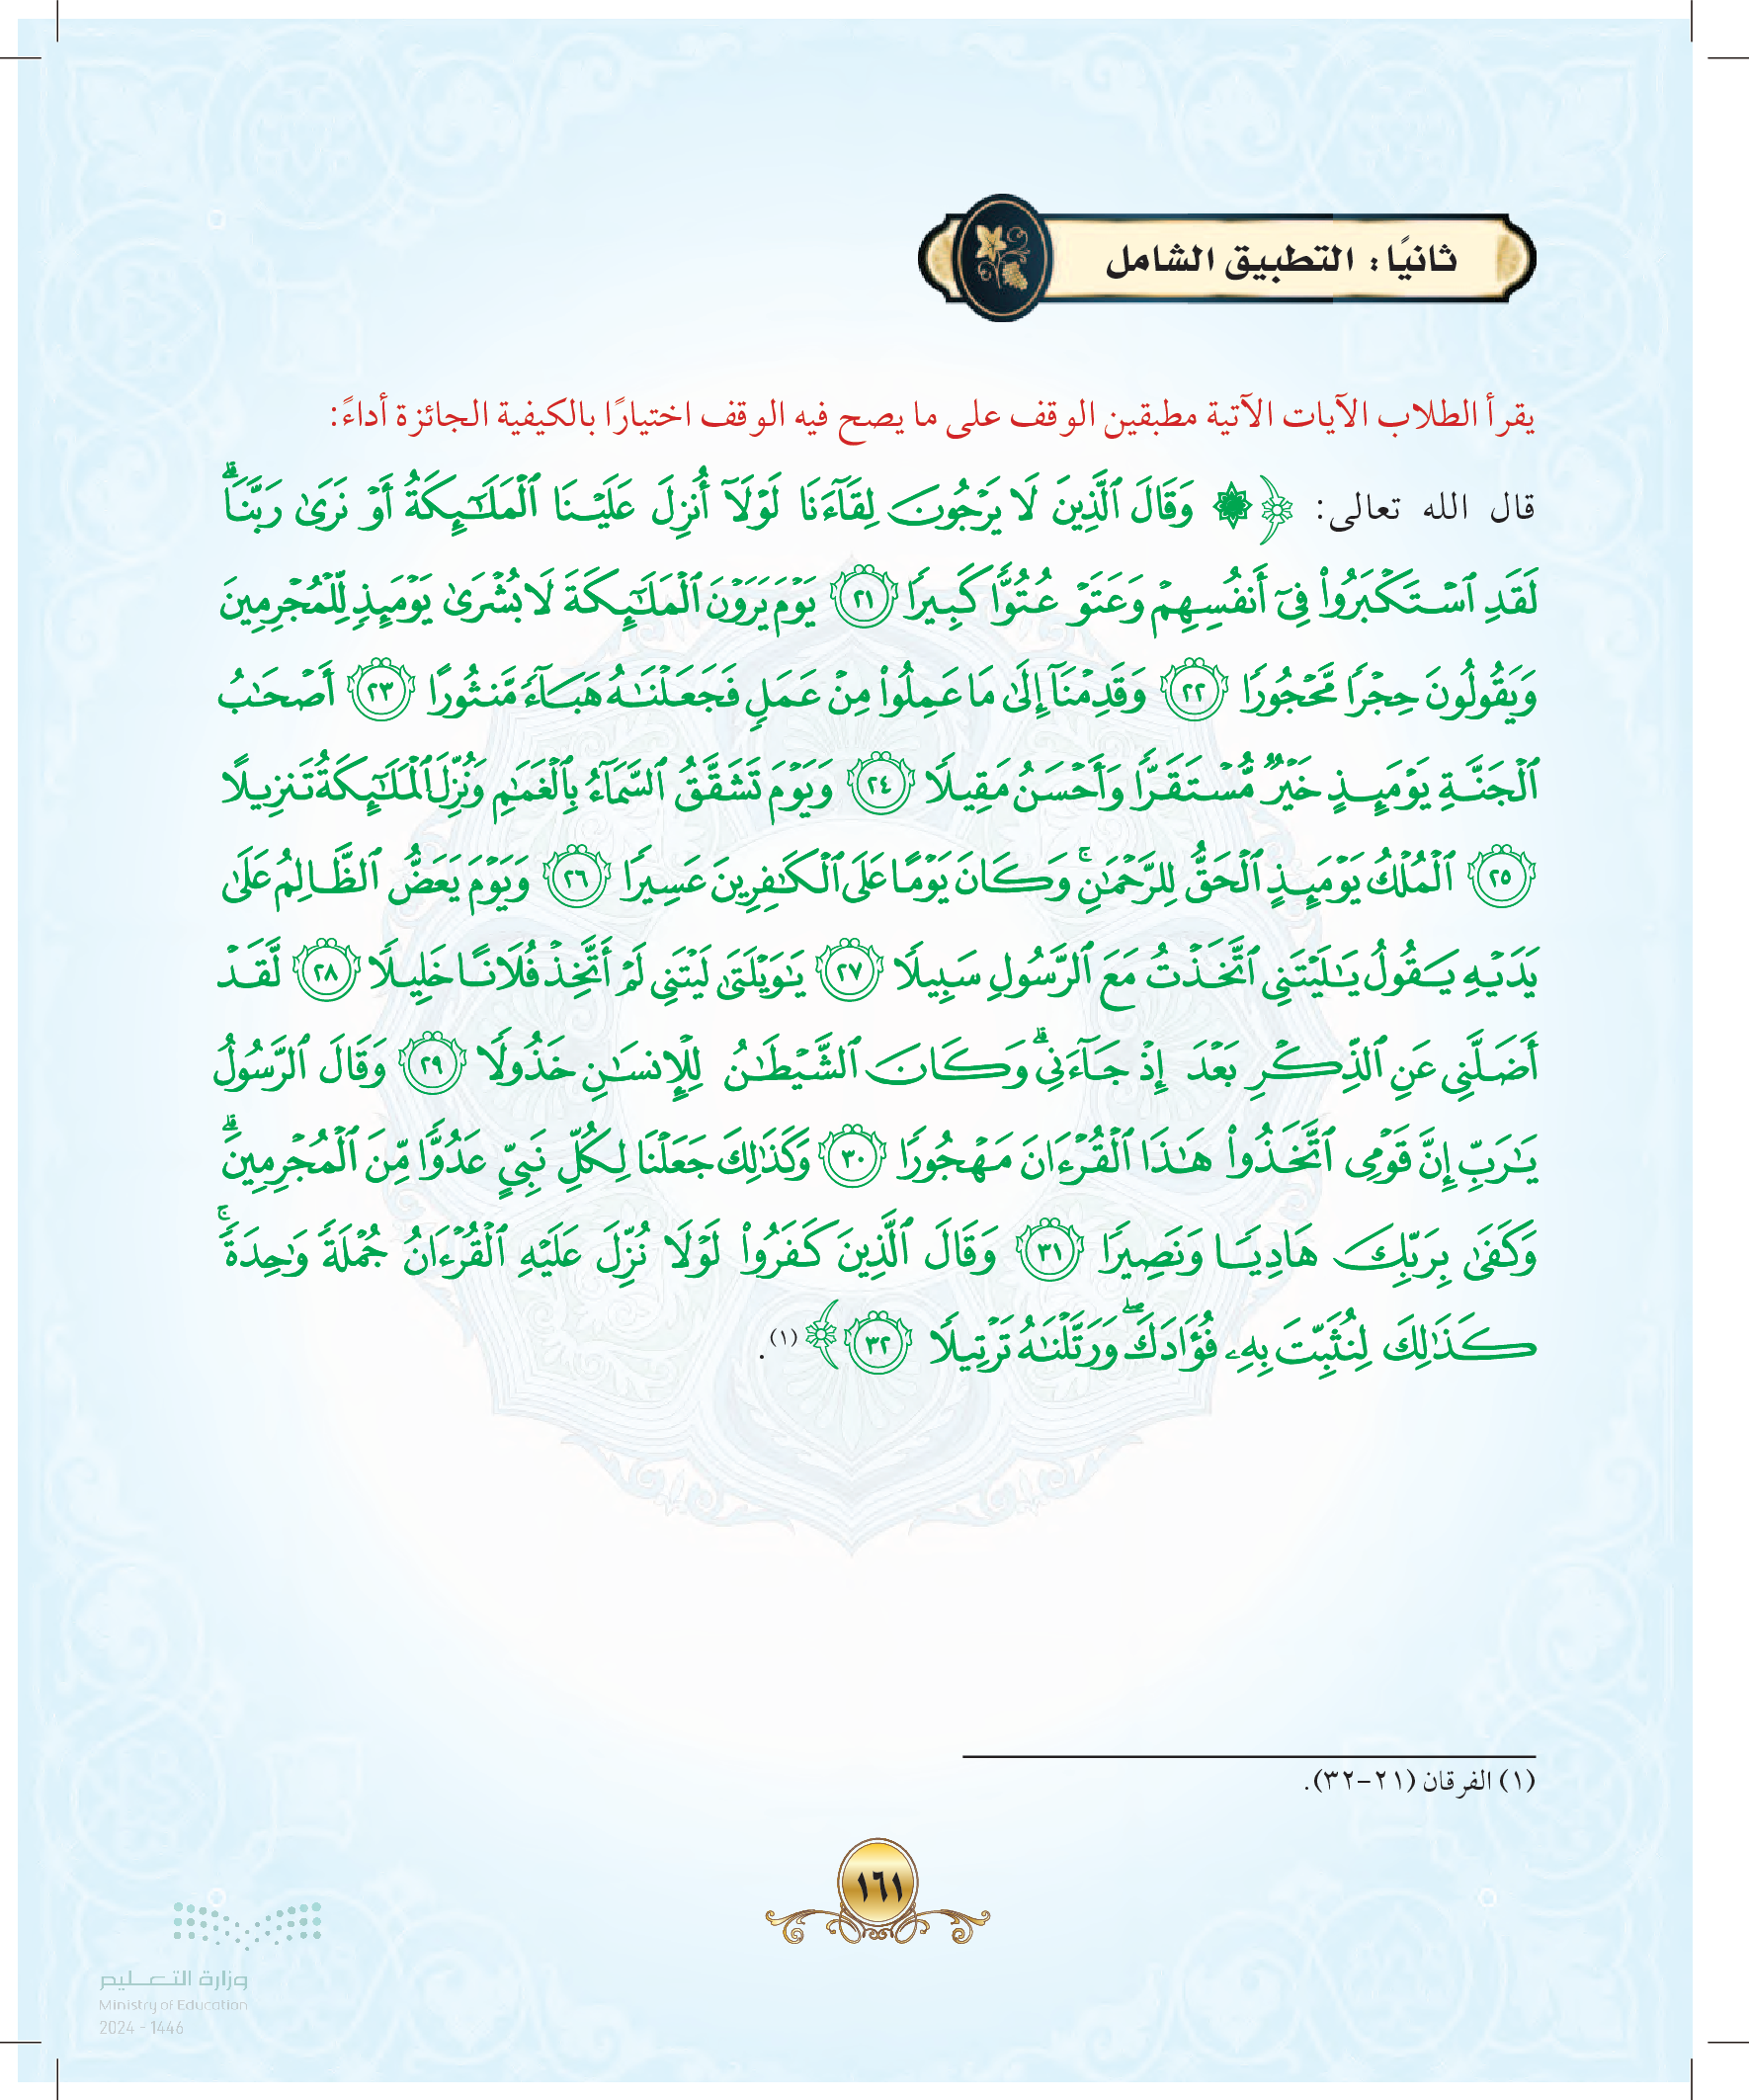 ثانيًا: التطبيق الشامل
يقرأ الطلاب الآيات الآتية مطبقين الوقف على ما يصح فيه الوقف اختيارًا بالكيفية الجائزة أداءً:
قال الله تعالى: ﴿ ۞ وَقَالَ ٱلَّذِينَ لَا يَرۡجُونَ لِقَآءَنَا لَوۡلَآ أُنزِلَ عَلَيۡنَا ٱلۡمَلَـٰٓئِكَةُ أَوۡ نَرَىٰ رَبَّنَاۗ
لَقَدِ ٱسۡتَكۡبَرُواْ فِيٓ أَنفُسِهِمۡ وَعَتَوۡ عُتُوّٗا كَبِيرٗا ٢١ يَوۡمَ يَرَوۡنَ ٱلۡمَلَـٰٓئِكَةَ لَا بُشۡرَىٰ يَوۡمَئِذٖ لِّلۡمُجۡرِمِينَ
وَيَقُولُونَ حِجۡرٗا مَّحۡجُورٗا ٢٢ وَقَدِمۡنَآ إِلَىٰ مَا عَمِلُواْ مِنۡ عَمَلٖ فَجَعَلۡنَـٰهُ هَبَآءٗ مَّنثُورًا ٢٣ أَصۡحَـٰبُ
ٱلۡجَنَّةِ يَوۡمَئِذٍ خَيۡرٞ مُّسۡتَقَرّٗا وَأَحۡسَنُ مَقِيلٗا ٢٤ وَيَوۡمَ تَشَقَّقُ ٱلسَّمَآءُ بِٱلۡغَمَـٰمِ وَنُزِّلَ ٱلۡمَلَـٰٓئِكَةُ تَنزِيلًا
٢٥ ٱلۡمُلۡكُ يَوۡمَئِذٍ ٱلۡحَقُّ لِلرَّحۡمَـٰنِۚ وَكَانَ يَوۡمًا عَلَى ٱلۡكَـٰفِرِينَ عَسِيرٗا ٢٦ وَيَوۡمَ يَعَضُّ ٱلظَّالِمُ عَلَىٰ
يَدَيۡهِ يَقُولُ يَـٰلَيۡتَنِي ٱتَّخَذۡتُ مَعَ ٱلرَّسُولِ سَبِيلٗا ٢٧ يَـٰوَيۡلَتَىٰ لَيۡتَنِي لَمۡ أَتَّخِذۡ فُلَانًا خَلِيلٗا ٢٨ لَّقَدۡ
أَضَلَّنِي عَنِ ٱلذِّكۡرِ بَعۡدَ إِذۡ جَآءَنِيۗ وَكَانَ ٱلشَّيۡطَـٰنُ لِلۡإِنسَـٰنِ خَذُولٗا ٢٩ وَقَالَ ٱلرَّسُولُ
يَـٰرَبِّ إِنَّ قَوۡمِي ٱتَّخَذُواْ هَـٰذَا ٱلۡقُرۡءَانَ مَهۡجُورٗا ٣٠ وَكَذَٰلِكَ جَعَلۡنَا لِكُلِّ نَبِيٍّ عَدُوّٗا مِّنَ ٱلۡمُجۡرِمِينَۗ
وَكَفَىٰ بِرَبِّكَ هَادِيٗا وَنَصِيرٗا ٣١ وَقَالَ ٱلَّذِينَ كَفَرُواْ لَوۡلَا نُزِّلَ عَلَيۡهِ ٱلۡقُرۡءَانُ جُمۡلَةٗ وَٰحِدَةٗۚ
كَذَٰلِكَ لِنُثَبِّتَ بِهِۦ فُؤَادَكَۖ وَرَتَّلۡنَـٰهُ تَرۡتِيلٗا ٣٢ ﴾(١).
(١) الفرقان (٢١-٣٢).
١٦١
وزارة التعليم
Ministry of Education
2024 - 1446